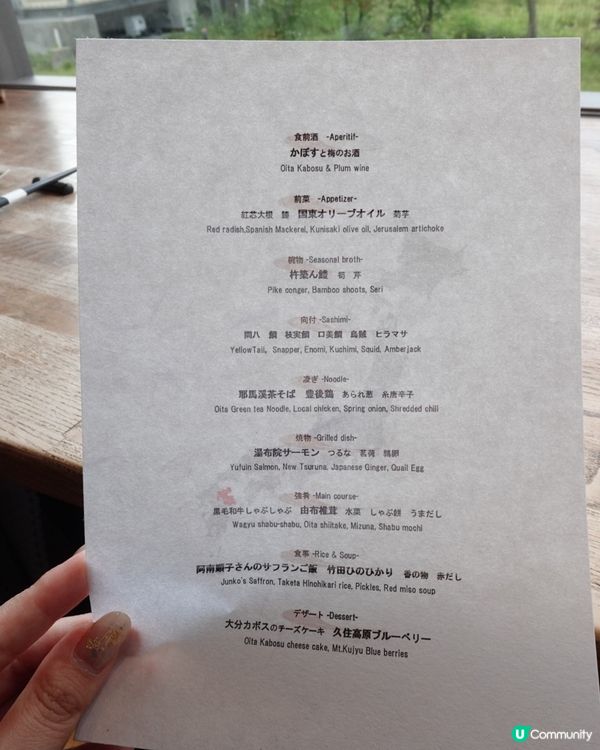 食前酒 -Aperitif-
かぼすと梅のお酒
Oita Kabosu & Plum wine
前菜 -Appetizer-
紅芯大根 鰆 国東オリーブオイル 菊芋
Red radish,Spanish Mackerel, Kunisaki olive oil, Jerusalem artichoke
椀物 -Seasonal broth-
杵築ん鱧 筍 芹
Pike conger, Bamboo shoots, Seri
向付 -Sashimi-
間八 鯛 枝実鯛 口美鯛 烏賊 ヒラマサ
YellowTail, Snapper, Enomi, Kuchimi, Squid, Amberjack
凌ぎ -Noodle-
耶馬溪茶そば 豊後鶏 あられ葱 糸唐辛子
Oita Green tea Noodle, Local chicken, Spring onion, Shredded chili
焼物 -Grilled dish-
湯布院サーモン つるな 茗荷 鶉卵
Yufuin Salmon, New Tsuruna, Japanese Ginger, Quail Egg
強肴 -Main course-
黒毛和牛しゃぶしゃぶ 由布椎茸 水菜 しゃぶ餅 うまだし
Wagyu shabu-shabu, Oita shiitake, Mizuna, Shabu mochi
食事 -Rice & Soup-
阿南順子さんのサフランご飯 竹田ひのひかり 香の物 赤だし
Junko's Saffron, Taketa Hinohikari rice, Pickles, Red miso soup
デザート -Dessert-
大分カボスのチーズケーキ 久住高原ブルーベリー
Oita Kabosu cheese cake, Mt.Kujyu Blue berries
U Community